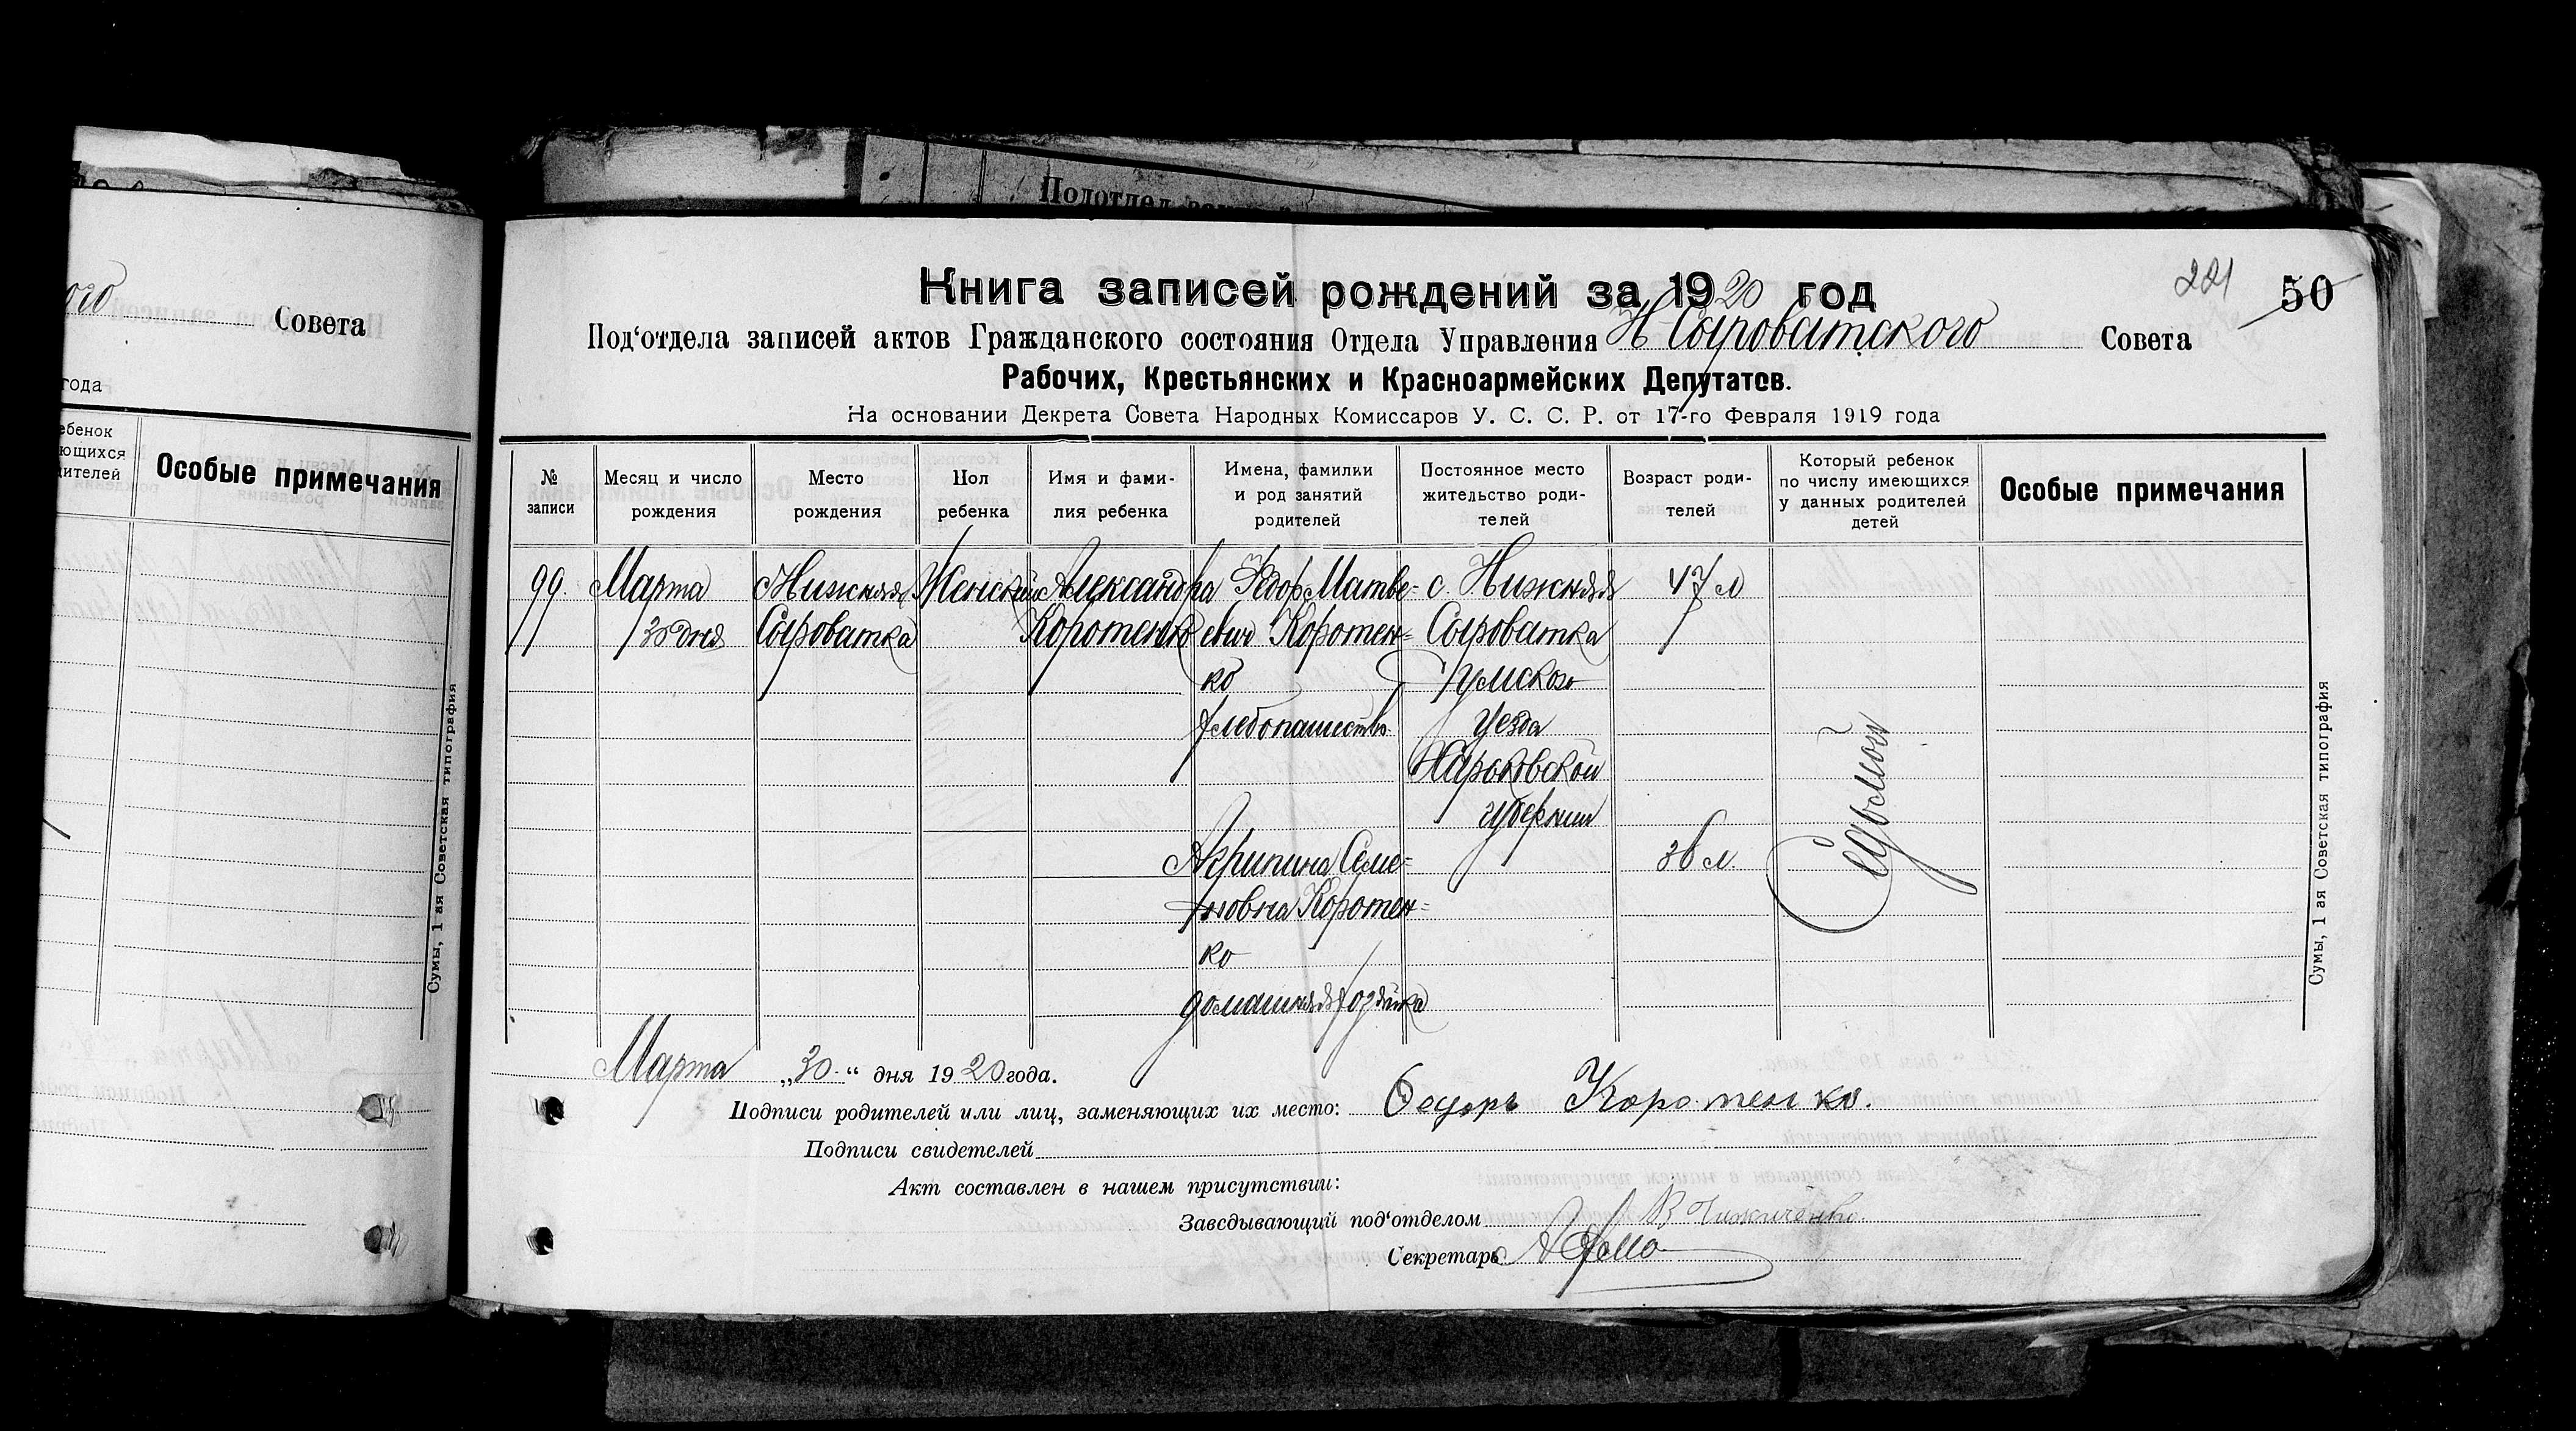 Подотдел
ого Совета
года
ебенок
ющихся
дителей
Особые примечания
Сумы, 1 ая Советская типография
221 50
Книга записей рождений за 1920 год
Под‘отдела записей актов Гражданского состояния Отдела Управления Н Сыроватского Совета
Рабочих, Крестьянских и Красноармейских Депутатов.
На основании Декрета Совета Народных Комиссаров У. С. С. Р. от 17-го Февраля 1919 года
№
записи
Месяц и число
рождения
Место
рождения
Пол
ребенка
Имя и фами-
лия ребенка
Имена, фамилии
и род занятий
родителей
Постоянное место
жительство роди-
телей
Возраст роди-
телей
Который ребенок
по числу имеющихся
у данных родителей
детей
Особые примечания
99.
Марта
30 дня
Нижняя
Сыроватка
Женский
Александра
Коротенко
Федор Матве-
евич Коротен-
ко
хлебопашество
Акрипина Семе-
новна Коротен-
ко
домашняя хозяйка
с. Нижняя
Сыроватка
Сумского
уезда
Харьковской
губернии
47 л
36 л.
Седьмой
Сумы, 1 ая Советская типография
Марта „30“ дня 1920 года.
Подписи родителей или лиц, заменяющих их место: Ѳедоръ Коротенко.
Подписи свидетелей
Акт составлен в нашем присутствии:
Заведывающий под‘отделом
Секретарь